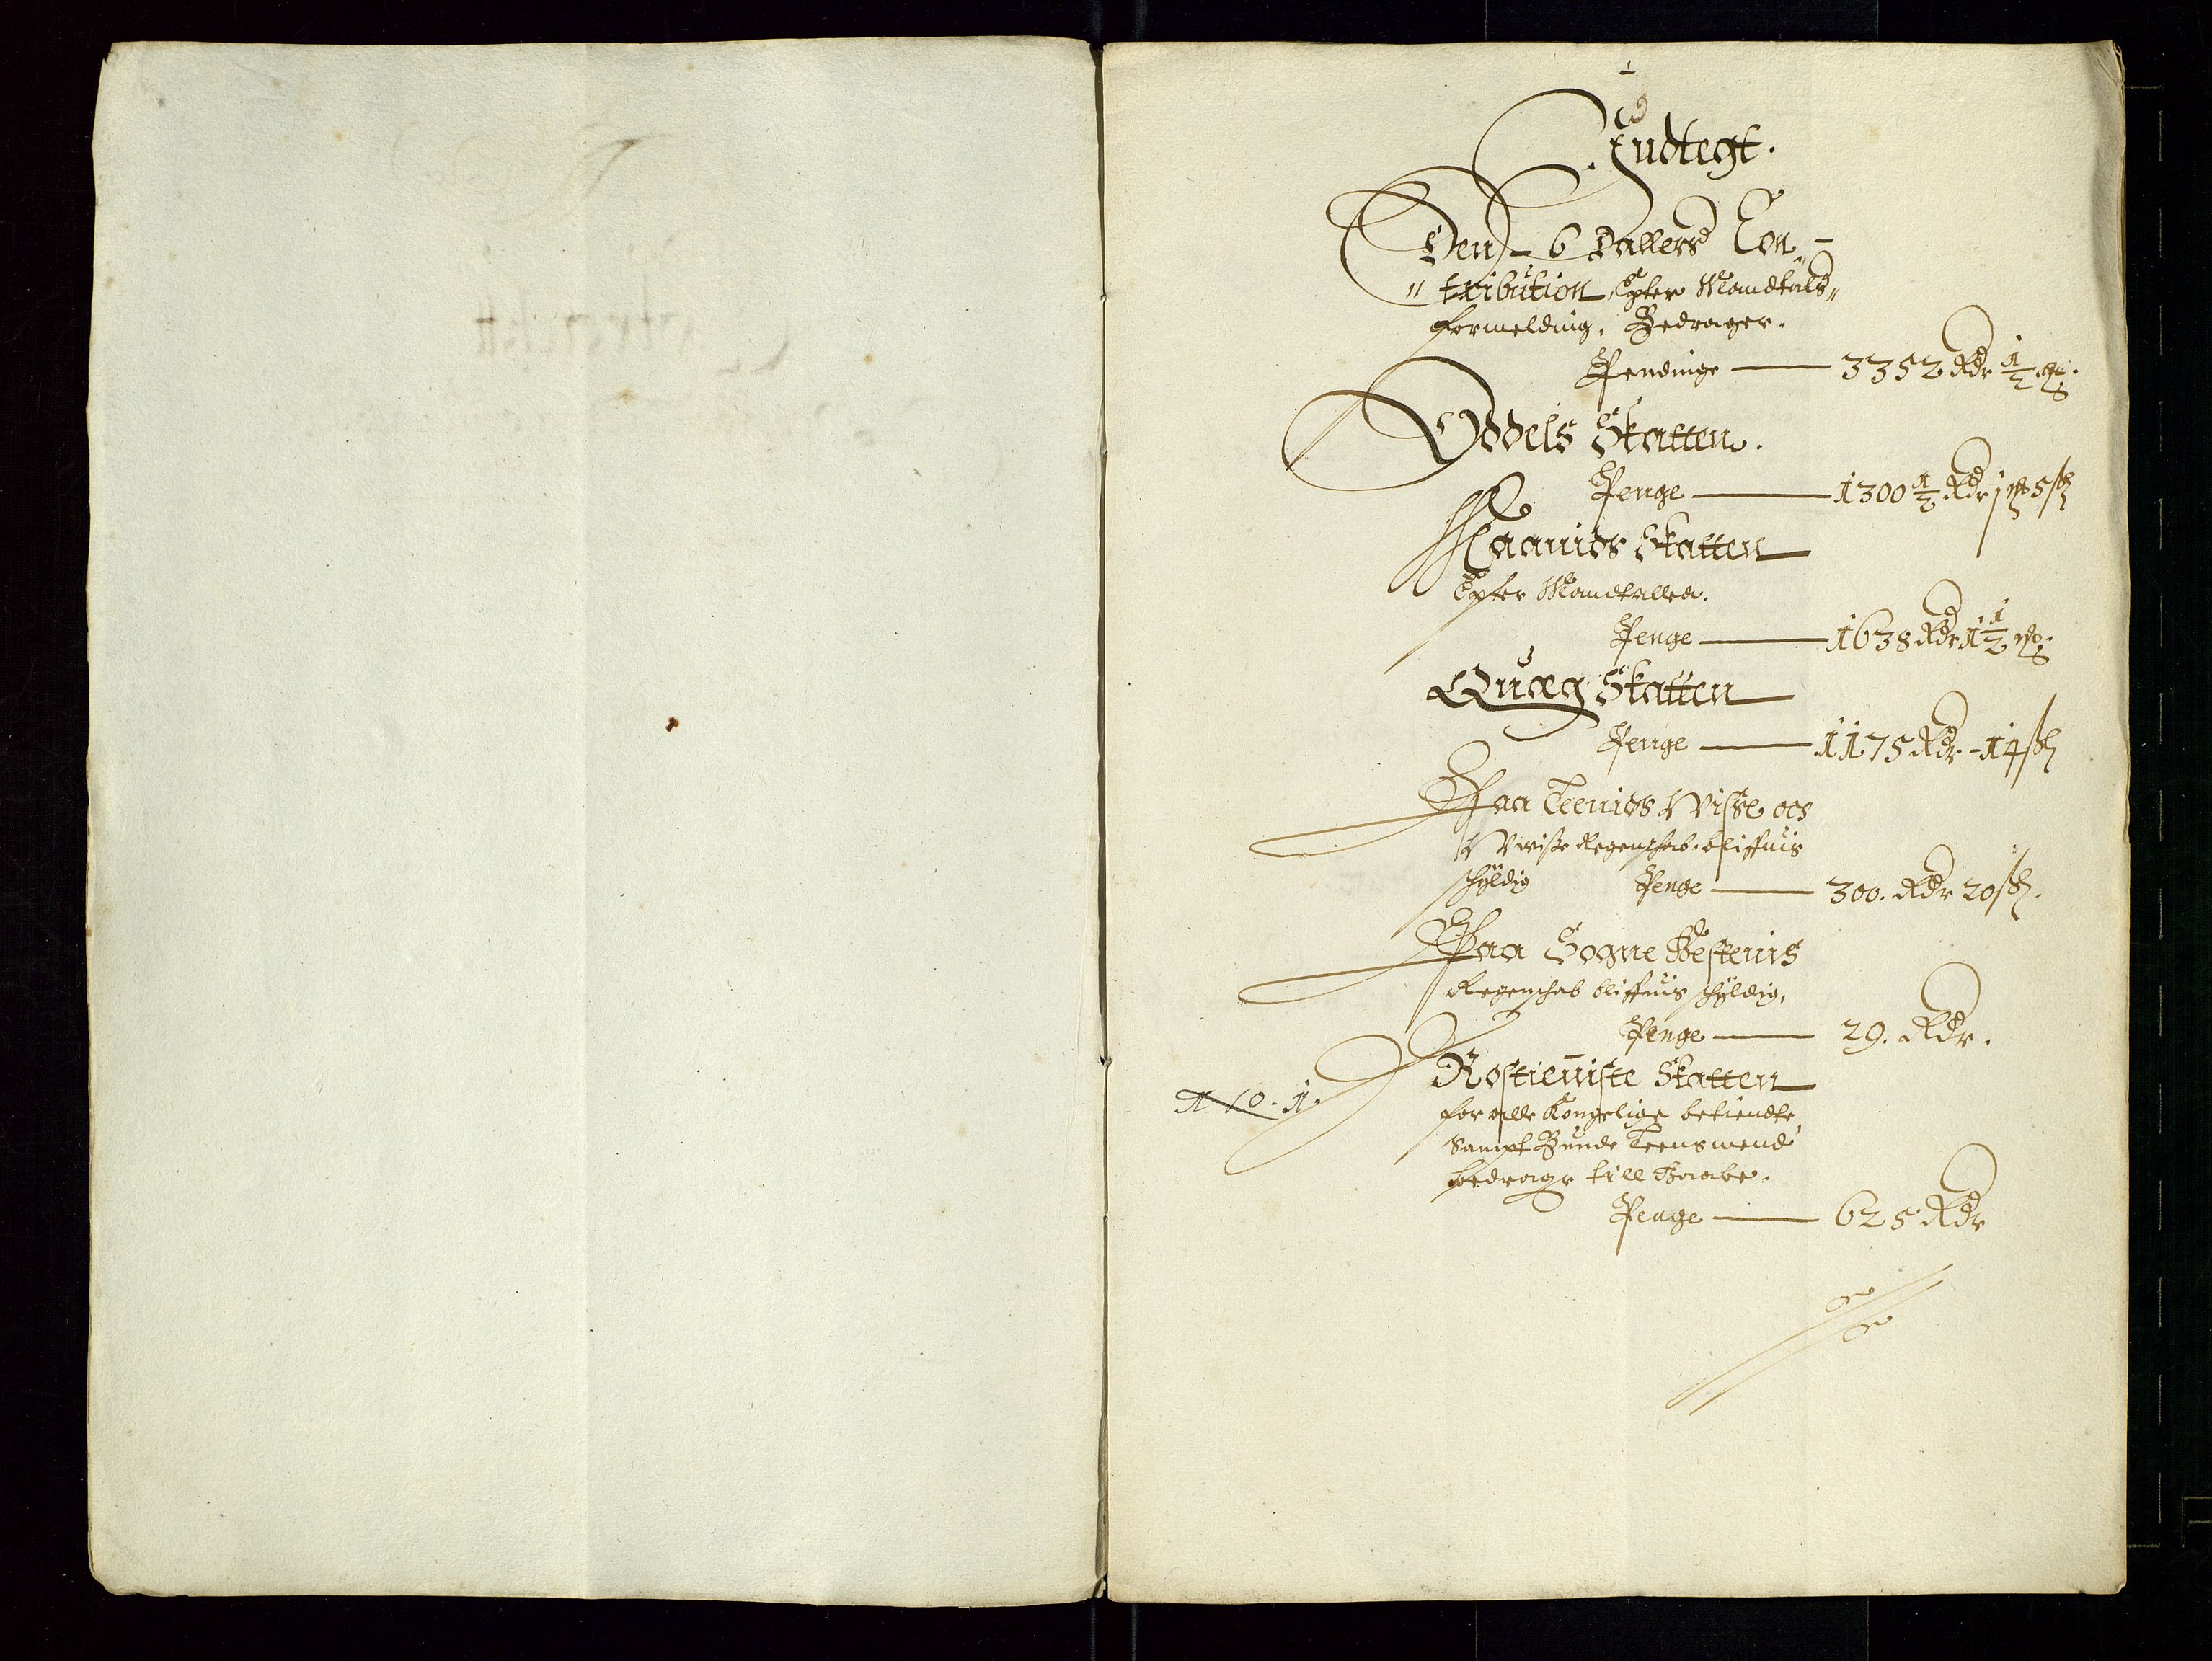 1
Indtegt.
Den 6 Dallers Con-
"tribution, Epter Mandtals"
formelding, Bedrager.
Pendinge — 3352 Rdr ½ ort.
Oddels Skatten.
Penge — 1300 ½ Rdr 1 ort 5 ß
Skatten
Epter Mandtallen.
Penge — 1638 Rdr 1½ ort.
Quæg Skatten
Penge — 1175 Rdr - 14 ß
Paa Leenids Visse oc
Uvisse Regenskab. bliffuis
skyldig Penge — 300. Rdr 20 ß.
Paa Sogne Presternis
Regenschab bliffuis schyldig,
Penge — 29. Rdr.
Rostienniste Skatten
No. 1.
for alle Kongelige betiendte,
Sampt Bunde Leensmend
bedrager till Haabe.
Penge — 625 Rdr